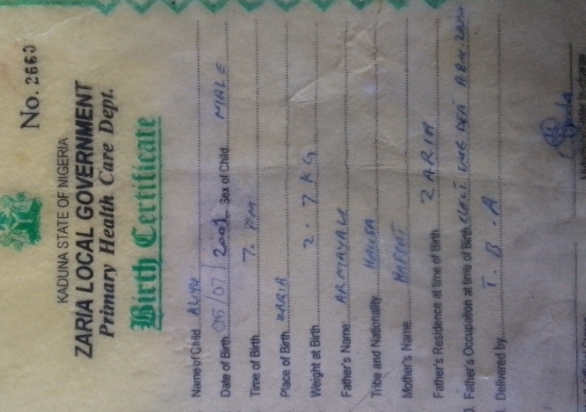 No. 2660
KADUNA STATE OF NIGERIA
ZARIA LOCAL GOVERNMENT
Primary Health Care Dept.
Birth Certificate
Name of Child ALIYU
Date of Birth 05/07/2001 Sex of Child MALE
Time of Birth 7. PM
Place of Birth ZARIA
Weight at Birth 2.7KG
Father's Name ARMAYAU
Tribe and Nationality HAUSA
Mother's Name
Father's Residence at time of Birth ZARIA
Father's Occupation at time of Birth
Delivered by T.B.A